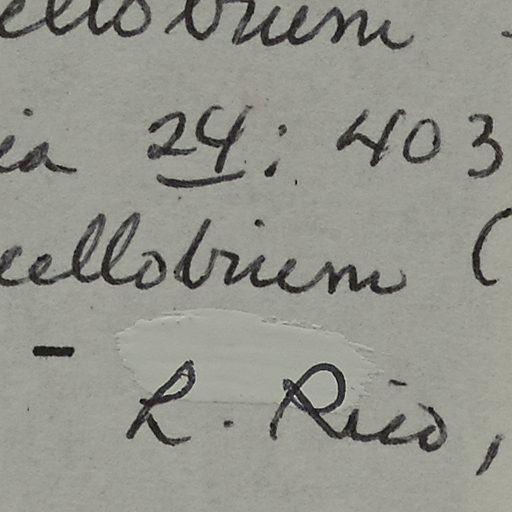 ellobrium
ia 24: 403
cellobrium (
- R. Rico,